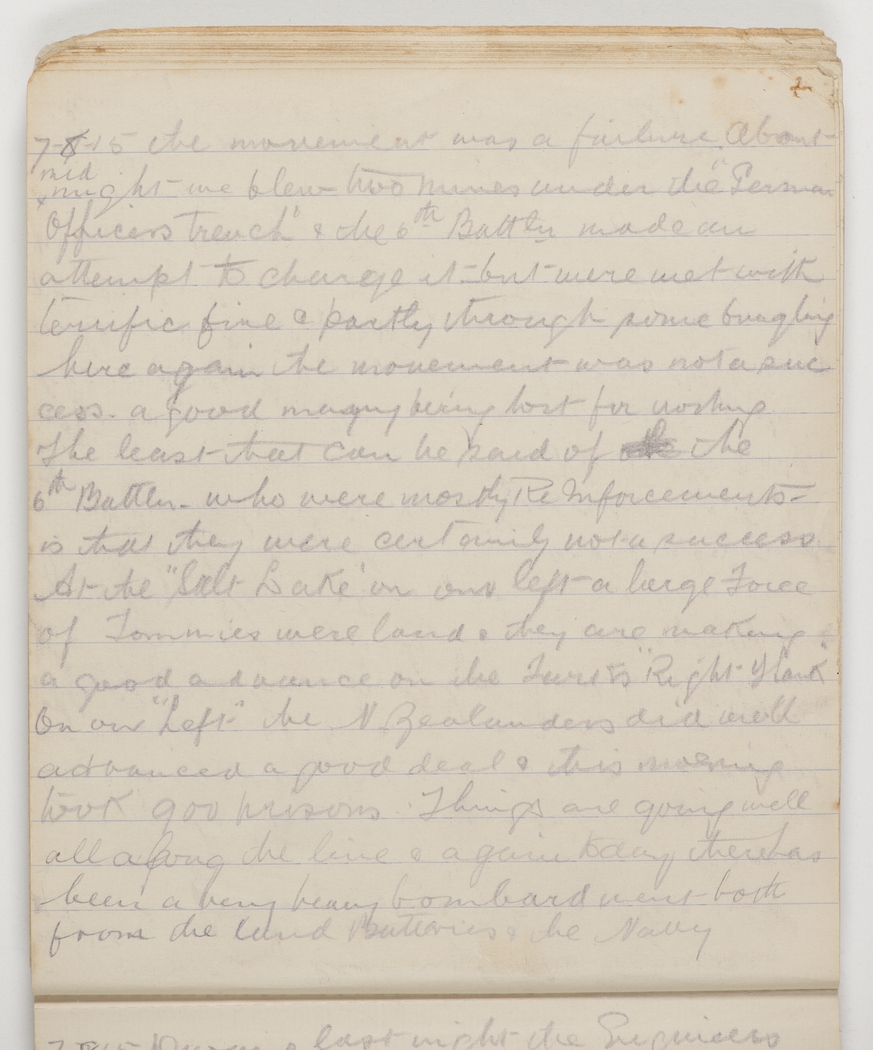 7-8-15 the movement was a failure. About
mid
night we blew two mines under the "German
Officers trench" & the 6th Battln made an
attempt to charge it - but were met with
terrific fire & partly through some bungling
here again the movement was not a suc
cess. a good many being lost for nothing
The least that can be said of the
6th Battln - who were mostly ReInforcements -
is that they were certainly not a success
At the "Salt Lake" on our left a large Force
of Tommies were land & they are making
a good advance on the Turks "Right Flank"
On our "Left" the N. Zealanders did well
advanced a good deal & this morning
took 900 prisons. Things are going well
all along the line & again today there has
been a very heavy bombardment both
from the land Batteries & the Navy
7-8-15 & last night the Engineers